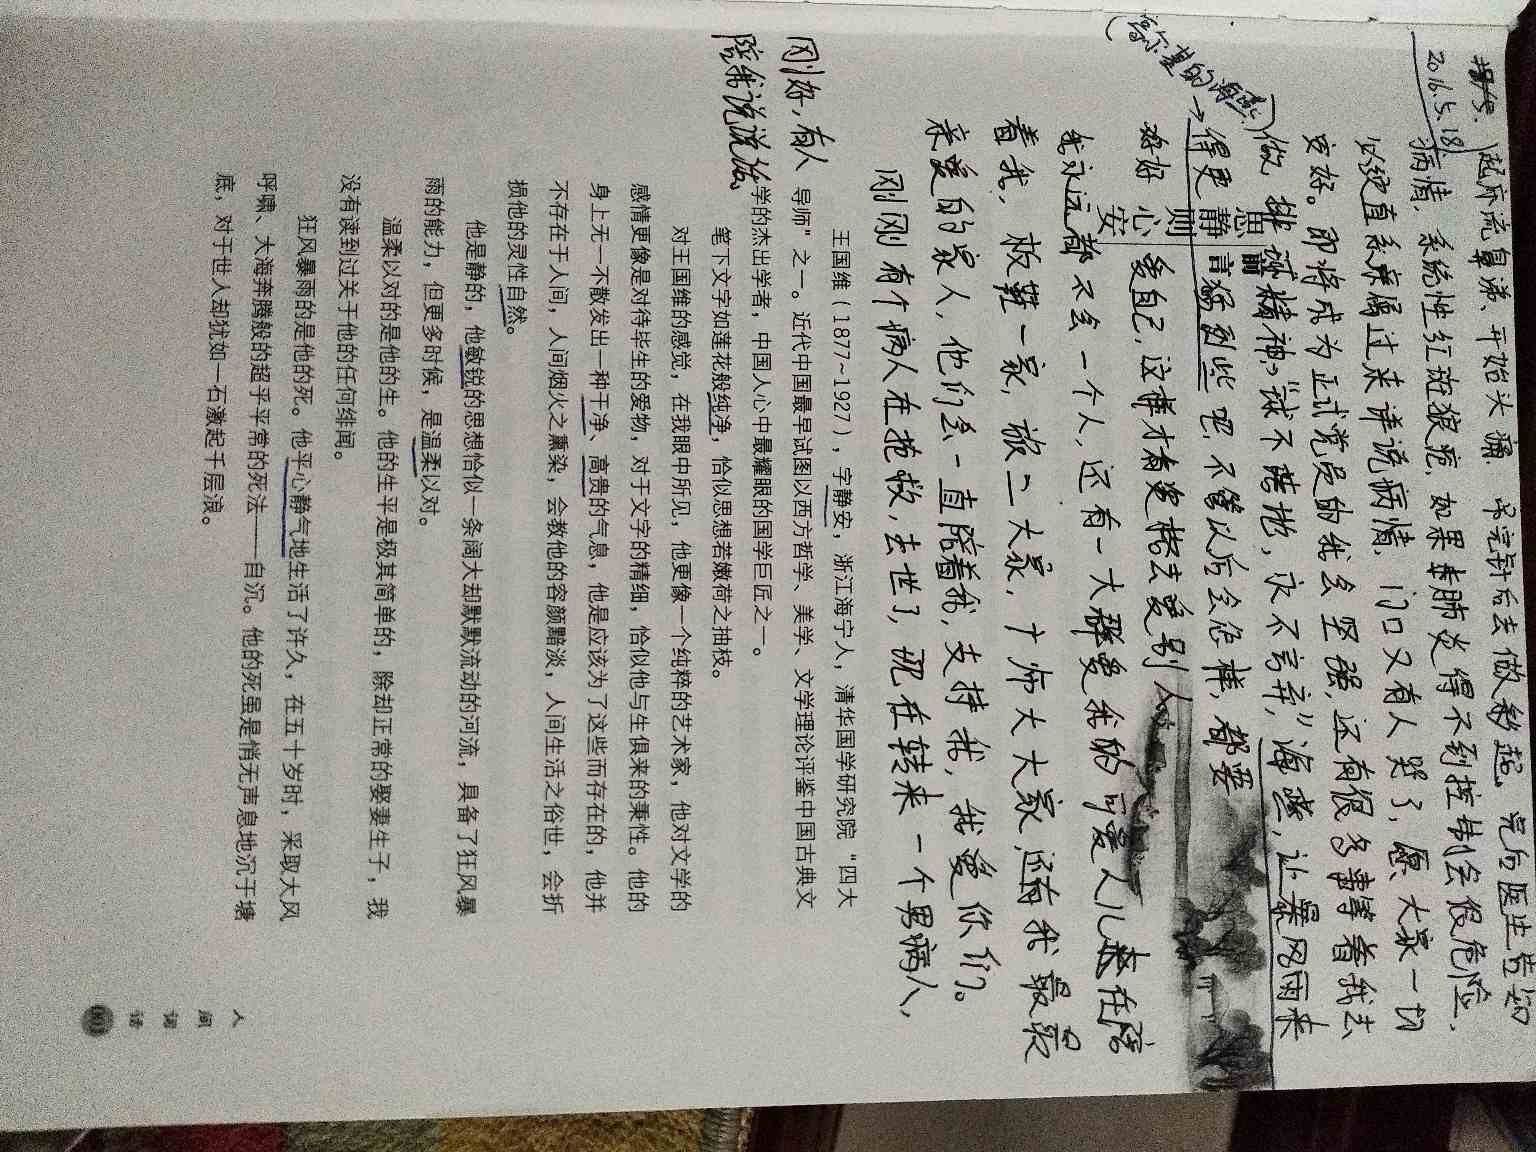 2016.5.18.
起床流鼻涕、开始头痛. 吊完针后去做彩超。完后医生告知
病情. 系统性红斑狼疮. 如果肺炎得不到控制会很危险.
以便直系亲属过来详说病情. 门口又有人哭了, 愿大家一切
安好。即将成为正式党员的我会坚强, 还有很多事等着我去
做.
精神，永不言弃，"海燕, 让暴风雨来
得更猛烈些吧, 不管以后会怎样, 都要
(高尔基的海燕)
好好爱自己, 这样才有资格去爱别人
我永远都不会一个人, 还有一大群爱我的可爱人儿在陪
着我, 放鞋一家, 旅二大家, 广师大大家, 还有我最最
亲爱的家人, 他们会一直陪着我, 支持我, 我爱你们。
刚刚有个病人在抢救, 去世了, 现在转来一个男病人,
刚好, 有人
陪我说说话。
思前言
静
则
心
安
王国维（1877~1927），字静安，浙江海宁人，清华国学研究院“四大
导师”之一。近代中国最早试图以西方哲学、美学、文学理论评鉴中国古典文
学的杰出学者，中国人心中最耀眼的国学巨匠之一。
笔下文字如莲花般纯净，恰似思想若嫩荷之抽枝。
对王国维的感觉，在我眼中所见，他更像一个纯粹的艺术家，他对文学的
感情更像是对待毕生的爱物，对于文字的精细，恰似他与生俱来的秉性。他的
身上无一不散发出一种干净、高贵的气息，他是应该为了这些而存在的，他并
不存在于人间，人间烟火之熏染，会教他的容颜黯淡，人间生活之俗世，会折
损他的灵性自然。
他是静的，他敏锐的思想恰似一条阔大却默默流动的河流，具备了狂风暴
雨的能力，但更多时候，是温柔以对。
温柔以对的是他的生。他的生平是极其简单的，除却正常的娶妻生子，我
没有读到过关于他的任何绯闻。
狂风暴雨的是他的死。他平心静气地生活了许久，在五十岁时，采取大风
呼啸、大海奔腾般的超乎平常的死法——自沉。他的死虽是悄无声息地沉于塘
底，对于世人却犹如一石激起千层浪。
人间词话
001